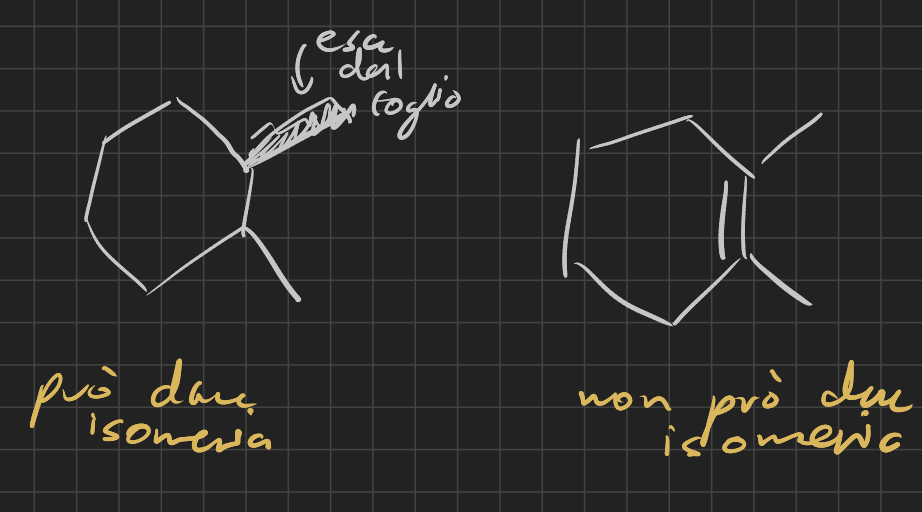 esce
dal
foglio
può dare
isomeria
non può dare
isomeria